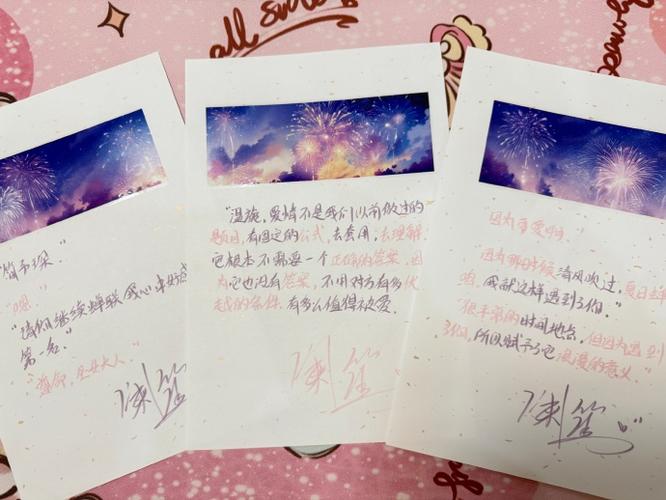 all
"嗯。"
"请你继续蝉联我心中好感
第一名。"
"遵命,女大人。"
爱情不是我们以前做过的
题目,有固定的公式,去套用,去理解
它根本不需要一个正确的答案,因
为它也没有答案,不用对方有多优
越的条件,有多么值得被爱。
因为
"因为那时候清风吹过,夏日
鸣,我就这样遇到了你。"
"很平常的时间地点,但因为遇到
了你,所以赋予了它浪漫的意义。"